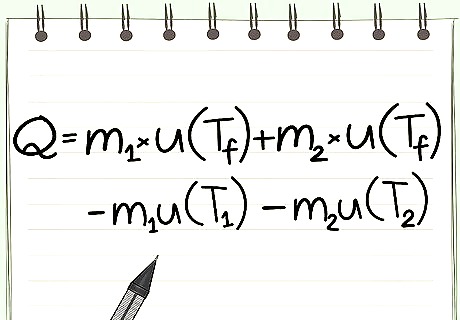 Q=m₁×u(T_f)+m₂×u(T_f)
-m₁u(T₁) -m₂u(T₂)